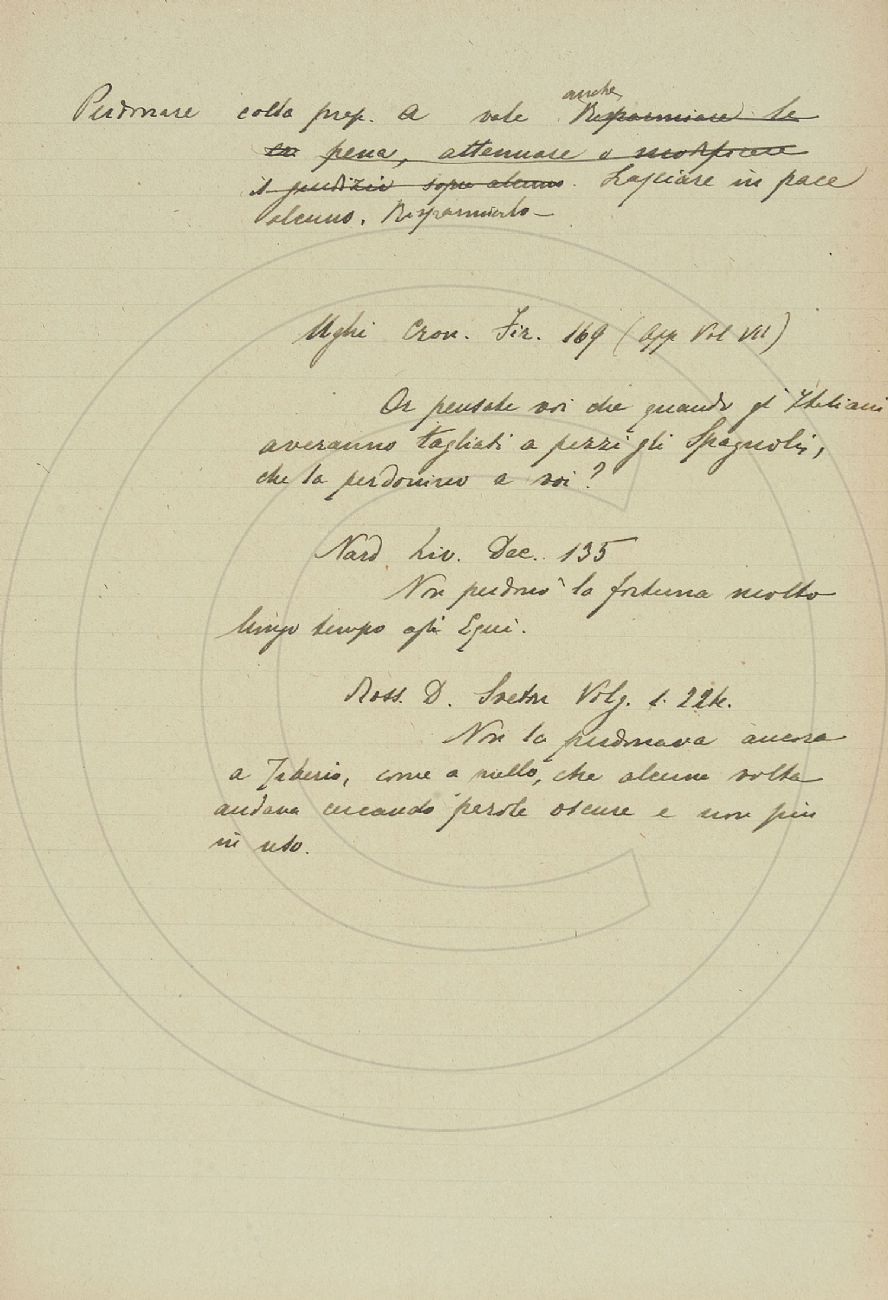 Perdonare colla prep. A vale anche Risparmiare la
la pena, attenuare o modificare
il giudizio sopra alcuno. Lasciare in pace
alcuno. Risparmiarlo —
Ughi Cron. Fir. 169 (App Vol VII)
Or pensate voi che quando gl'Italiani
averanno tagliati a pezzi gli Spagnoli,
che la perdonino a voi?
Nard Liv. Dec. 135
Non perdonò la fortuna molto
lungo tempo agli Equi.
Ross. D. Sveton Volg. 1. 226.
Non la perdonava ancora
a Tiberio, come a quello, che alcuna volta
andava cercando parole oscure e non più
in uso.